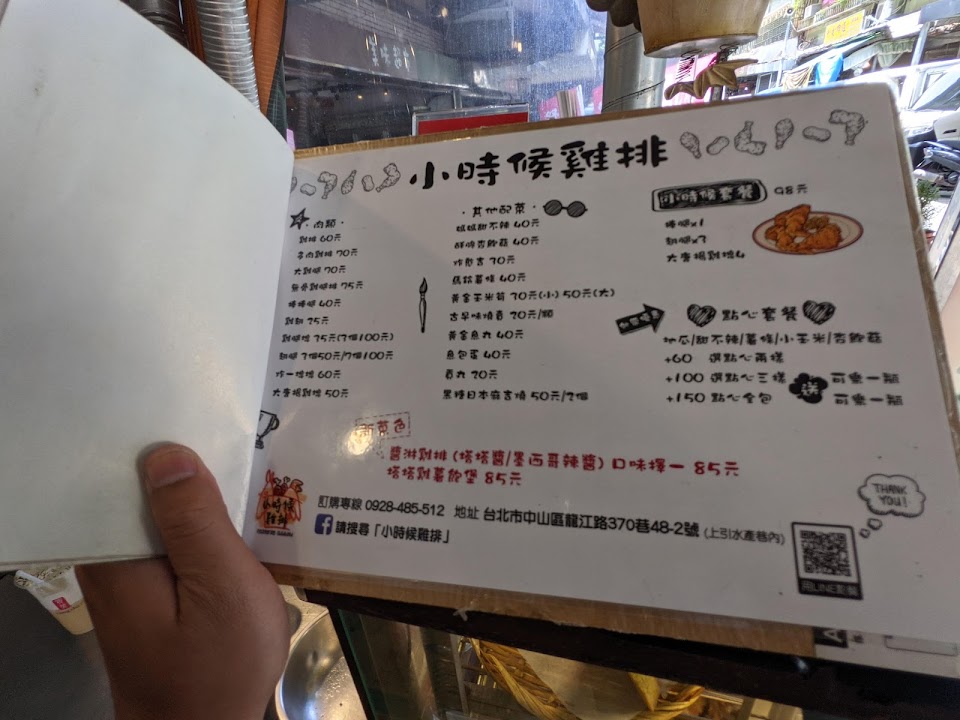 小時候雞排
·肉類·
雞排 60元
多肉雞排 70元
大雞腿 70元
無骨雞腿排 75元
棒棒腿 40元
雞翅 25元
雞塊 35元(3個100元)
翅腿 2個50元/5個100元
炸一塊塊 60元
大麥揚雞塊 50元
·其他配菜·
媽媽甜不辣 40元
酥脆杏鮑菇 40元
炸魷吉 30元
馬鈴薯條 40元
黃金玉米筍 30元(小) 50元(大)
古早味燒賣 20元/顆
黃金魚丸 40元
魚包蛋 40元
貢丸 20元
黑糖日本麻吉燒 50元/2個
小時候套餐 98元
棒腿x1
翅腿x2
大麥揚雞塊4
點心套餐
地瓜/甜不辣/薯條/小玉米/杏鮑菇
+60 選點心兩樣
+100 選點心三樣 送 可樂一瓶
+150 點心全包 可樂一瓶
新菜色
醬淋雞排 (塔塔醬/墨西哥辣醬) 口味擇一 85元
塔塔雞薯飽堡 85元
訂購專線 0928-485-512 地址 台北市中山區龍江路370巷48-2號 (上引水產巷內)
請搜尋「小時候雞排」
小時候
雞排
THANK
YOU!
用LINE點餐